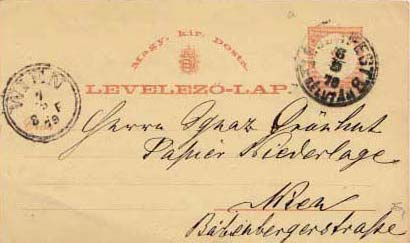 Magy. kir. Posta.
LEVELEZŐ-LAP.
WIEN
Herrn Ignaz Grünhut
Papier Niederlage
Wien
Babenbergerstraße